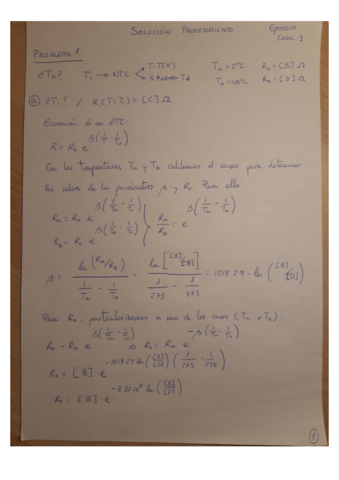 SOLUCIÓN PROCEDIMIENTO
Ejercicio
Clase 3
PROBLEMA 1
¿T? T → NTC T_A = 0°C R_A = [B] Ω
T_B = 100°C R_B = [D] Ω
a) ¿T? / R(T=T) = [C] Ω
Ecuación de un NTC:
R = R₀ e^β(1/T - 1/T₀)
Con las temperaturas T_A y T_B calibramos el sensor para determinar
los valores de los parámetros β y R₀. Para ello:
R_A = R₀ e^β(1/T_A - 1/T₀)
R_B = R₀ e^β(1/T_B - 1/T₀)
R_A/R_B = e^β(1/T_A - 1/T_B)
β = ln(R_A/R_B) / (1/T_A - 1/T_B) = ln([B]/[D]) / (1/273 - 1/373) = 1018.29 · ln([B]/[D])
Para R₀, particularizamos a uno de los casos (T_A o T_B):
R_A = R₀ e^β(1/T_A - 1/T₀) ⇒ R₀ = R_A e^-β(1/T_A - 1/T₀)
R₀ = [B] e^-1018.29·ln([B]/[D])(1/273 - 1/298)
R₀ = [B] e
1